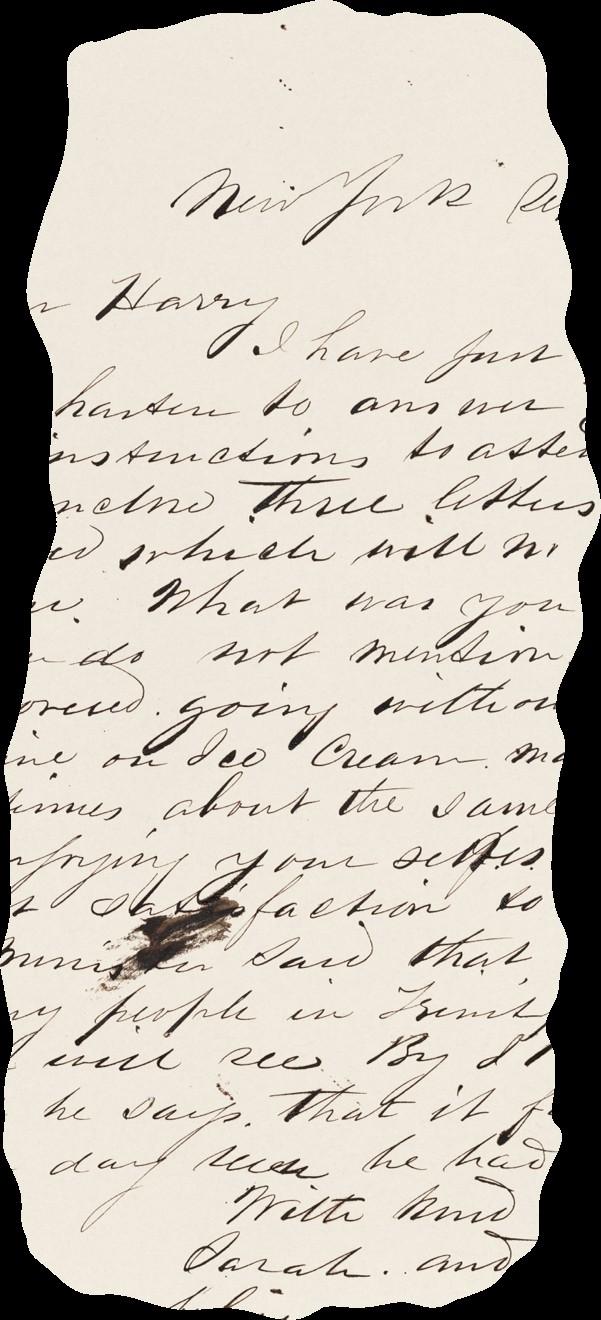 New York
Harry
I have just
hasten to answer
instructions to
three letters
which will
What was you
do not mention
going
on Ice Cream.
times about the same
your selfes
satisfaction to
Minister said that
people in
will see By
he says. that it
day he had
With kind
Sarah. and